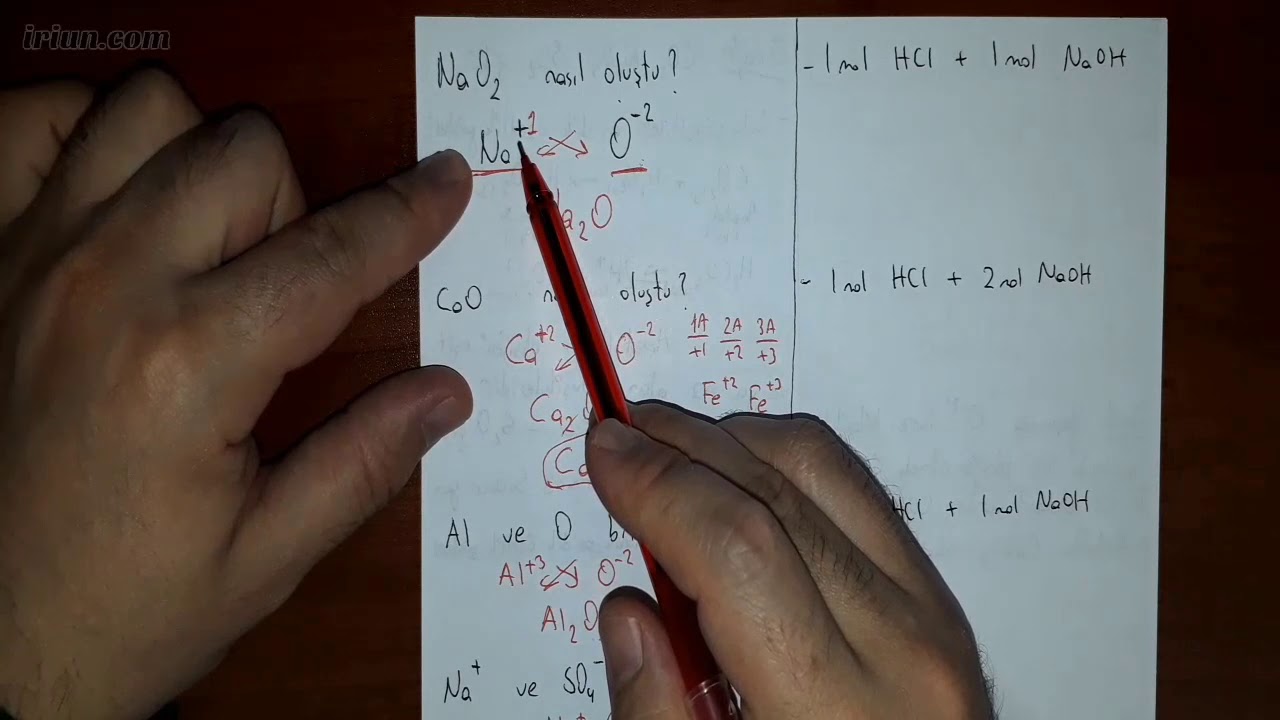 iriun.com
NaO₂ nasıl oluştu?
Na⁺¹ O⁻²
₂O
CaO oluştu?
1A 2A 3A
+1 +2 +3
Ca⁺² O⁻²
Fe⁺² Fe⁺³
Ca₂
Al ve O
Al⁺³ O⁻²
Al₂O
Na⁺ ve SO₄⁻
- 1 mol HCl + 1 mol NaOH
- 1 mol HCl + 2 mol NaOH
HCl + 1 mol NaOH